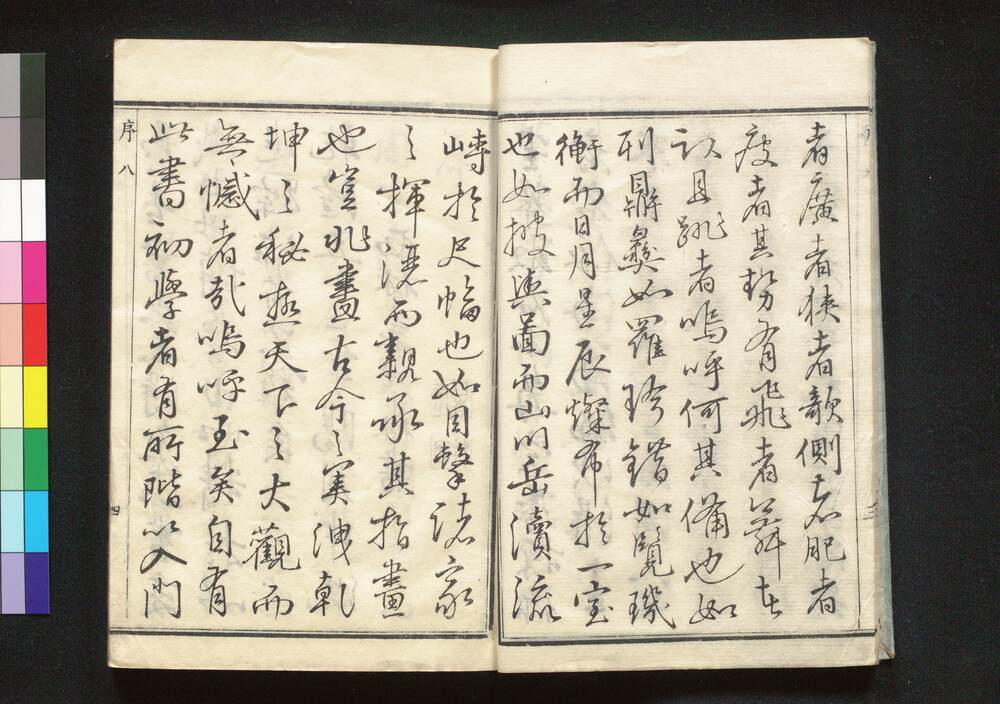 者廣者狹者欹側者肥者
疲者其勢有飛者舞者
趴且跳者嗚呼何其備也如
列鼎彝如羅珍錯如覽璣
衡而日月星辰燦布於一室
也如披輿圖而山川岳瀆流
峙於尺幅也如目擊諸家
之揮灑而親承其指畫
也豈非畫古今之〓洩乾
坤之秘極天下之大觀而
無憾者哉嗚呼至矣自有
此書初學者有所階以入門
序八
四